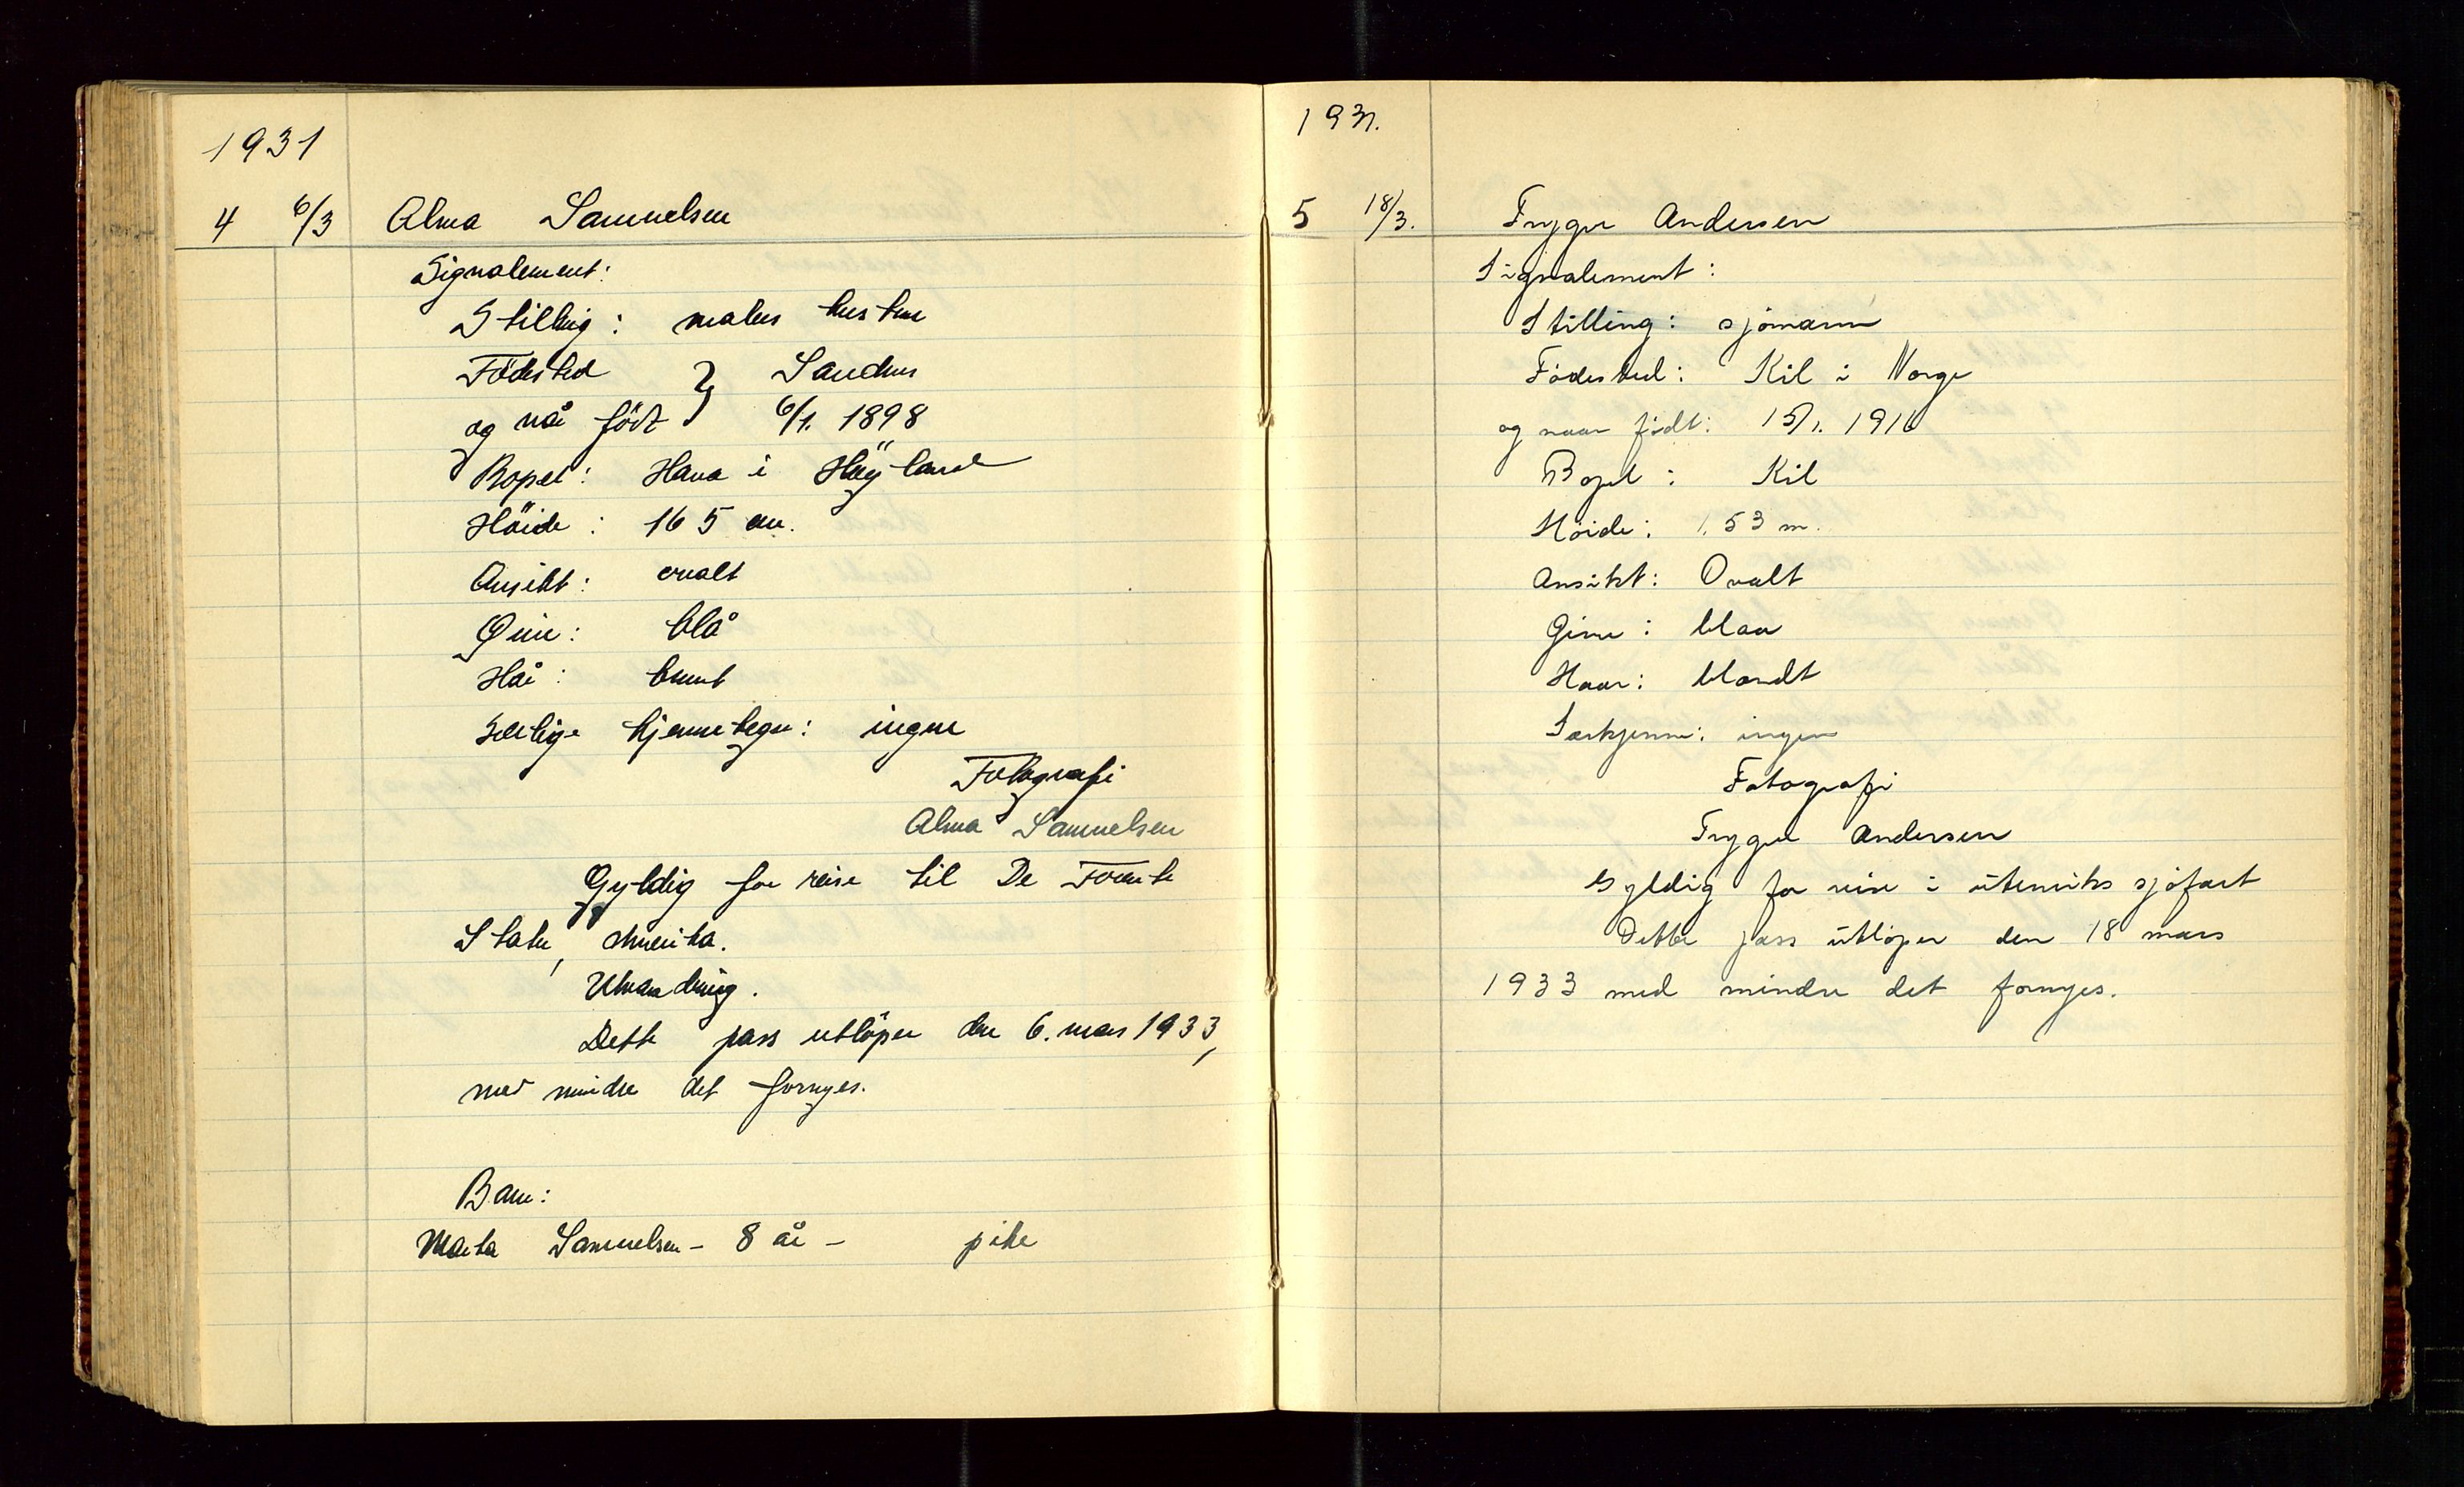 1931
4 6/3 Alma Samuelsen
Signalement:
Stilling: malers hustru
Fødested } Sandnes
og når født } 6/1. 1898
Bopel: Hana i Høyland
Höide: 165 cm.
Ansikt: ovalt
Øine: blå
Hår: brunt
Særlige kjennetegn: ingen
Fotografi
Alma Samuelsen
Gyldig for reise til De Forente
Stater, Amerika.
Utvandring.
Dette pass utlöper den 6. mars 1933,
med mindre det fornyes.
Barn:
Marta Samuelsen - 8 år - pike
1931.
5 18/3. Trygve Andersen
Signalement:
Stilling: sjömann
Födested: Kil i Norge
og naar födt: 15/1. 1916
Bopel: Kil
Höide: 1.53 m.
Ansikt: Ovalt
Öine: blaa
Haar: blondt
Særkjenne: ingen
Fotografi
Trygve Andersen
Gyldig for reise i utenriks sjöfart
Dette pass utlöper den 18 mars
1933 med mindre det fornyes.